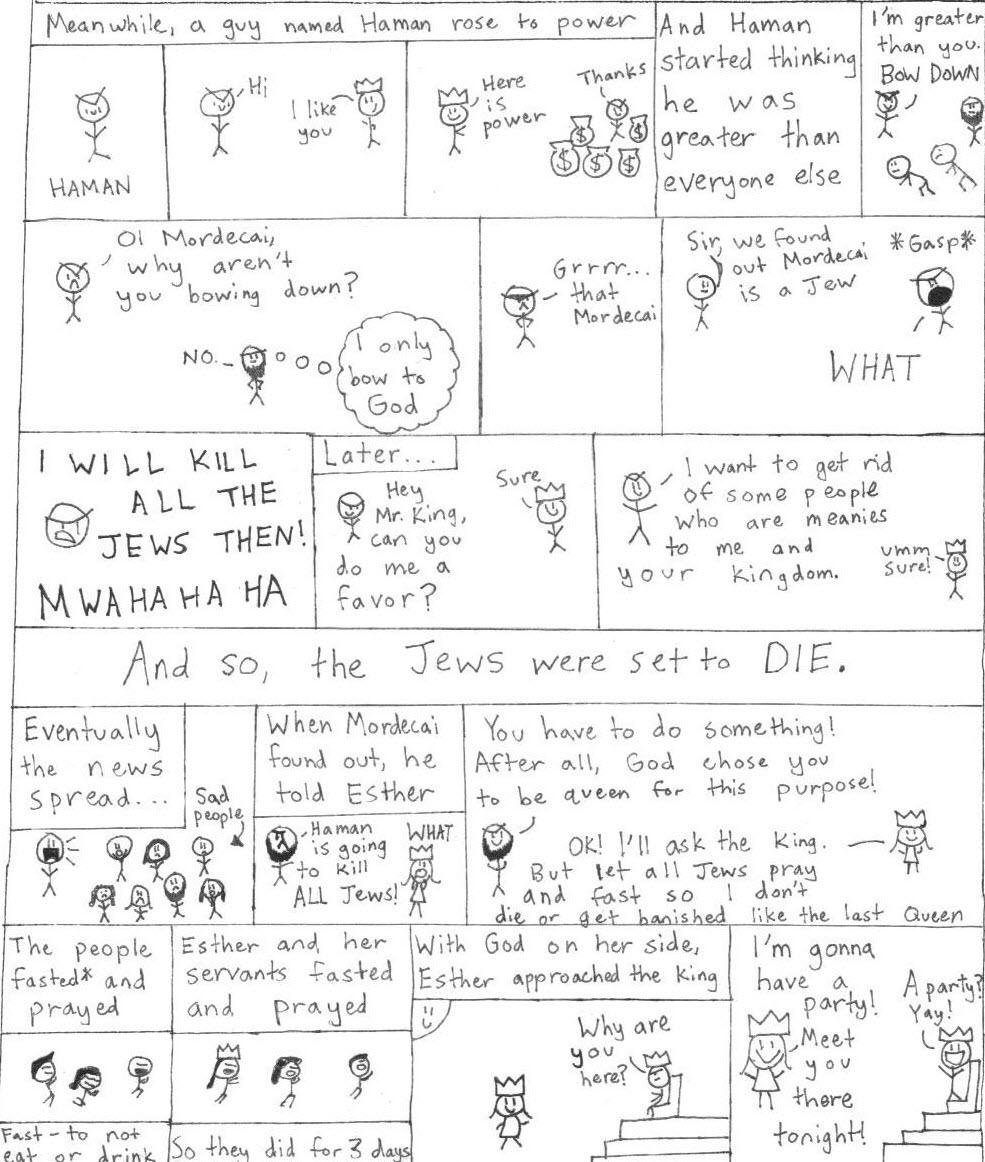 Meanwhile, a guy named Haman rose to power
HAMAN
Hi
I like
you
Here
is
power
Thanks
$
$
$
$
$
And Haman
started thinking
he was
greater than
everyone else
I'm greater
than you.
BOW DOWN
OI Mordecai,
why aren't
you bowing down?
NO.
I only
bow to
God
Grrrr...
that
Mordecai
Sir, we found
out Mordecai
is a Jew
*Gasp*
WHAT
I WILL KILL
ALL THE
JEWS THEN!
MWAHAHA HA
Later...
Hey
Mr. King,
can you
do me a
favor?
Sure
I want to get rid
of some people
who are meanies
to me and
your kingdom.
umm
sure!
And so, the Jews were set to DIE.
Eventually
the news
spread...
Sad
people
When Mordecai
found out, he
told Esther
Haman
is going
to kill
ALL Jews!
WHAT
You have to do something!
After all, God chose you
to be queen for this purpose!
OK! I'll ask the King.
But let all Jews pray
and fast so I don't
die or get banished like the last Queen
The people
fasted* and
prayed
Fast - to not
eat or drink
Esther and her
servants fasted
and prayed
So they did for 3 days
With God on her side,
Esther approached the King
Why are
you
here?
I'm gonna
have a
party!
Meet
you
there
tonight!
A party?
Yay!